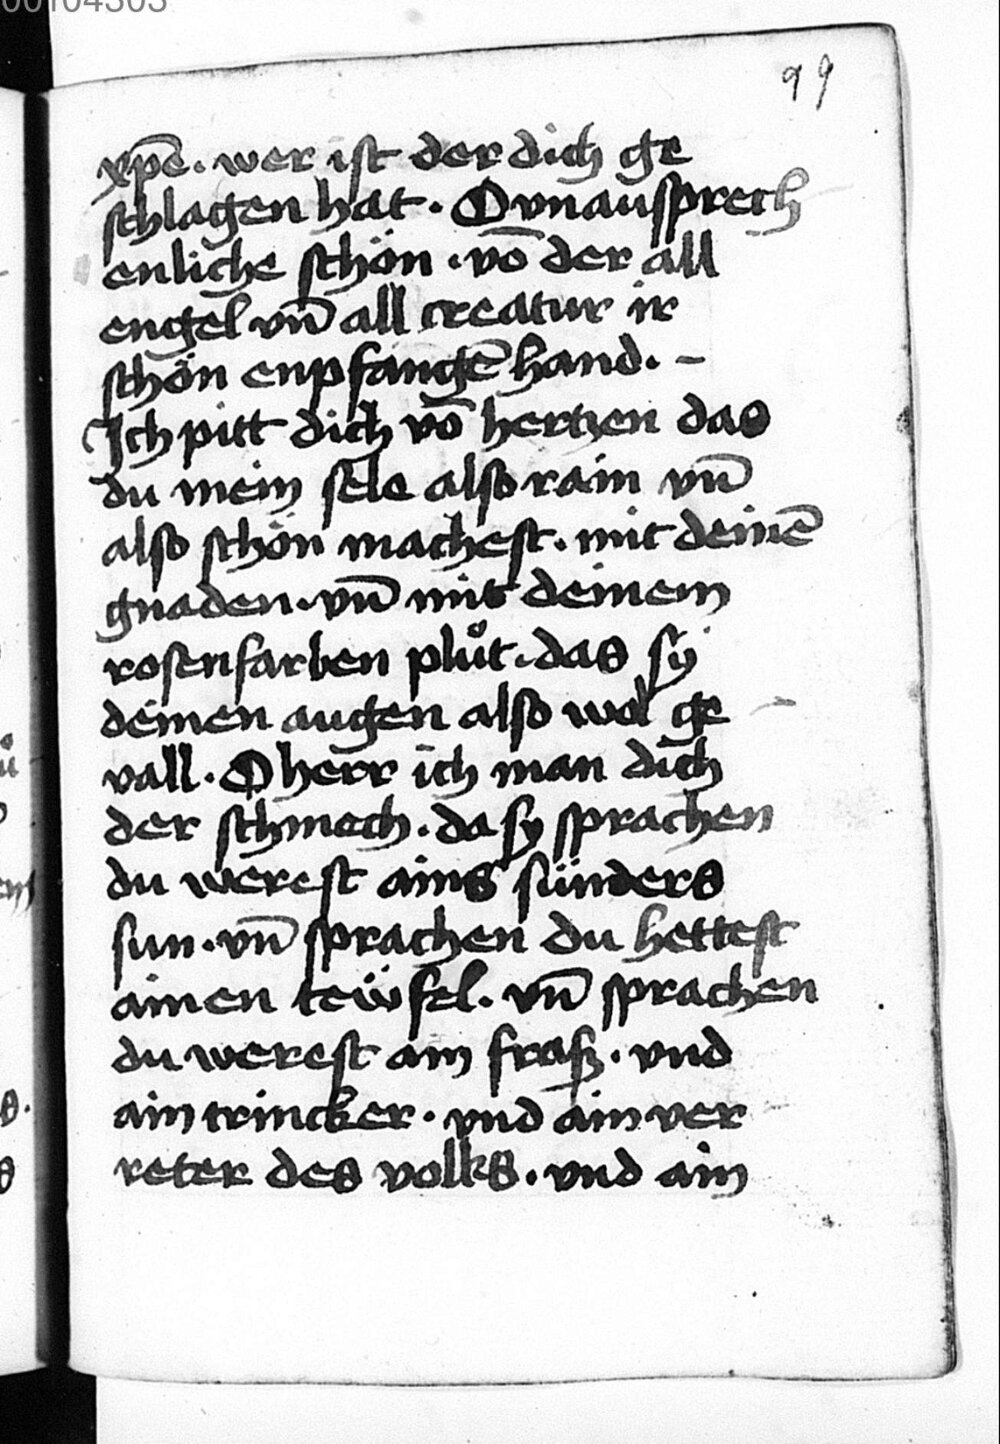 99
xp̄e. wer ist der dich ge
schlagen hat. O vnaussprech
enliche schön. vō der all
engel vn̄ all creatur ir
schön enpfangē hand. –
Ich pitt dich vō hertzen das
du mein sele also rain vn̄
also schön machest. mit deinē
gnaden. vn̄ mit deinem
rosenfarben plůt. das sÿ
deinen augen also wol ge
vall. O herr ich man dich
der schmech. da sy sprachen
du werest ains sünders
sun. vn̄ sprachen du hettest
ainen teẅfel. vn̄ sprachen
du werest ain frasz. vnd
ain trincker. vnd ain ver
reter des volks. vnd ain